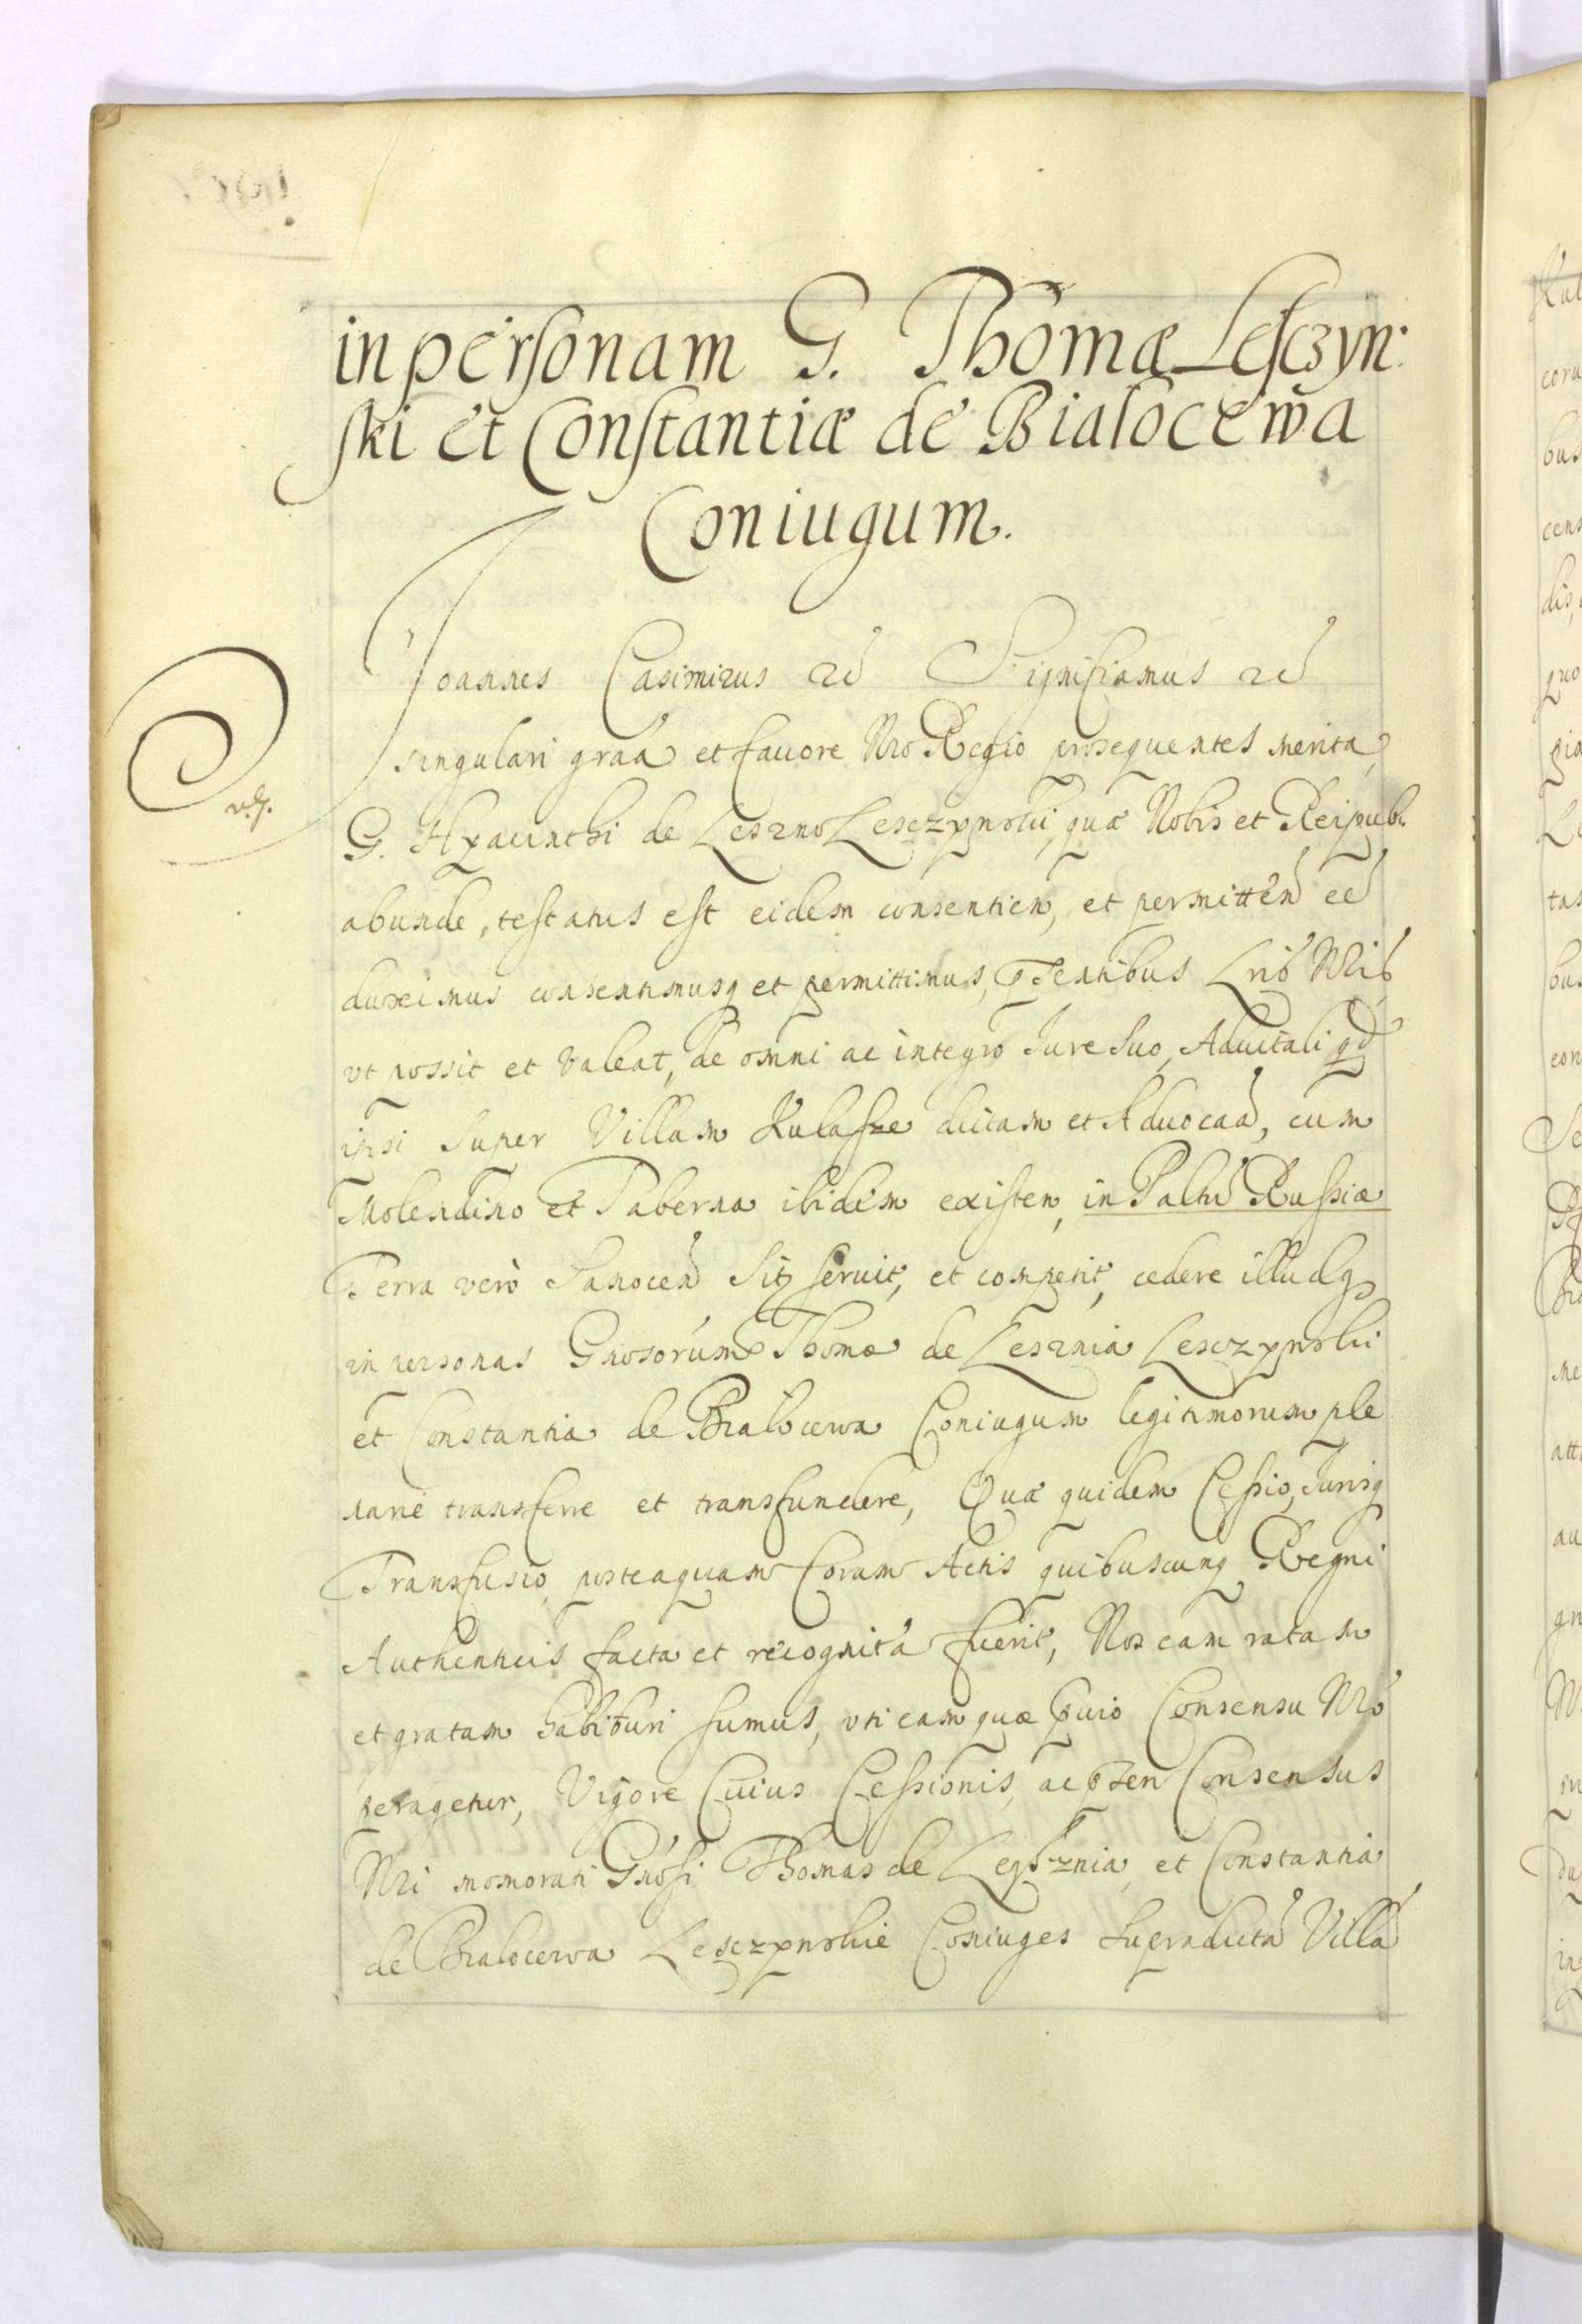 in personam G. Thomæ Lesczyn:
ski et Constantiæ de Białocewa
Coniugum.
Joannes Casimirus etc Significamus etc
singulari graã et favore Nro Regio prosequentes merita
G. Hyacinthi de Leszno Lesczynski, quæ Nobis et Reipub.
abunde, testatus est eidem consentien, et permitten eē
duximus consentimusq et permittimus, pñtibus Lris Nris
vt possit et valeat, de omni ac integro Jure suo, Aduitali qd
ipsi super Villam Kulasze dictam et Aduocaã, cum
Molendino et Taberna ibidem existen, in Paltu Russiæ
Terra verò Sanocen sit, seruit, et competit, cedere illudq
in personas Gnosorum Thomæ de Lesznia Lesczynski
et Constantiæ de Białocewa Coniugum legitimorum ple
narie transferre et transfundere, Quæ quidem Cessio, Jurisq
Transfusio, posteaquam Coram Actis quibuscunq Regni
Authenticis facta et recognita fuerit, Nos eam ratam
et gratam habituri sumus, vti eam quæ pvio Consensu Nro
peragetur, Vigore Cuius Cessionis, ac pñten Consensus
Nri memorati Gnosi Thomas de Leszznia, et Constantia
de Białocewa Lesczynskie Coniuges supradictã Villã